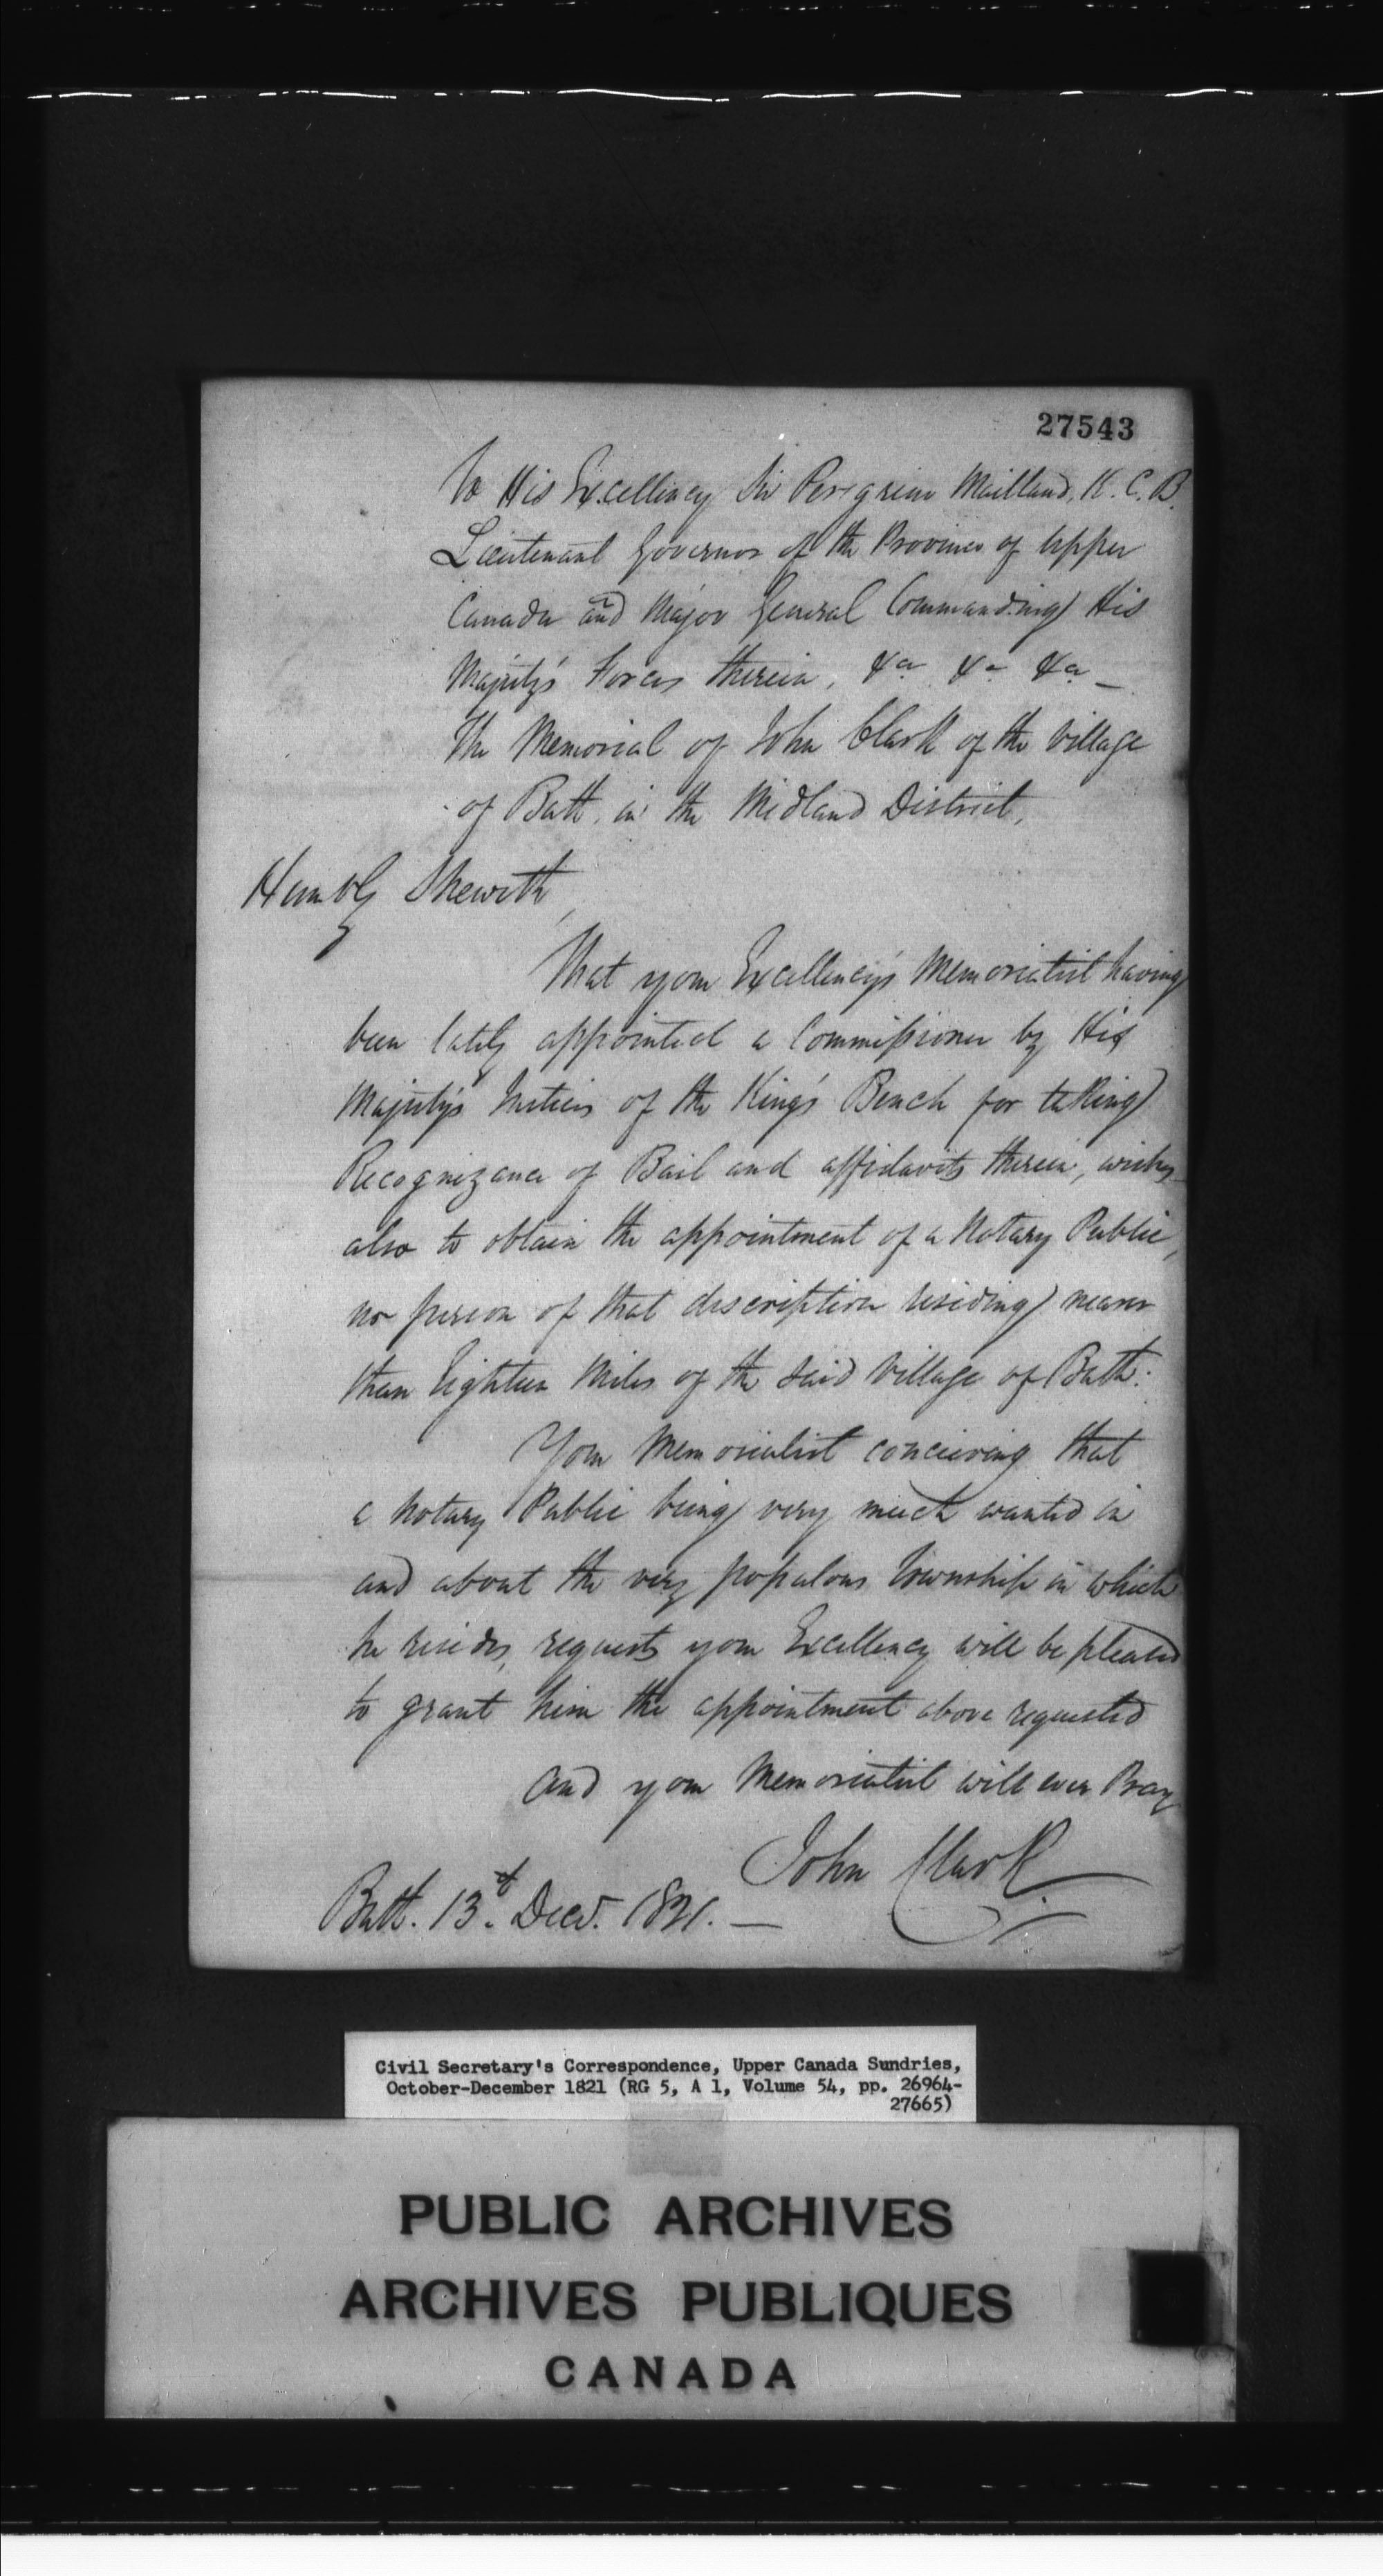 27543
To His Excellency Sir Peregrine Maitland, K. C. B.
Lieutenant Governor of the Province of Upper
Canada and Major General Commanding His
Majesty's Forces therein, &a &a &a
The Memorial of John Clark of the Village
of Bath, in the Midland District,
Humbly Sheweth,
That your Excellency's Memorialist having
been lately appointed a Commissioner by His
Majesty's Justices of the King's Bench for taking
Recognizance of Bail and affidavits therein, wishes
also to obtain the appointment of a Notary Public,
no person of that description residing nearer
than Eighteen Miles of the said Village of Bath.
Your Memorialist conceiving that
a Notary Public being very much wanted in
and about the very populous Township in which
he resides, requests your Excellency will be pleased
to grant him the appointment above requested
And your Memorialist will ever Pray
John Clark
Bath. 13th Decr. 1821.
Civil Secretary's Correspondence, Upper Canada Sundries,
October-December 1821 (RG 5, A 1, Volume 54, pp. 26964-
27665)
PUBLIC ARCHIVES
ARCHIVES PUBLIQUES
CANADA